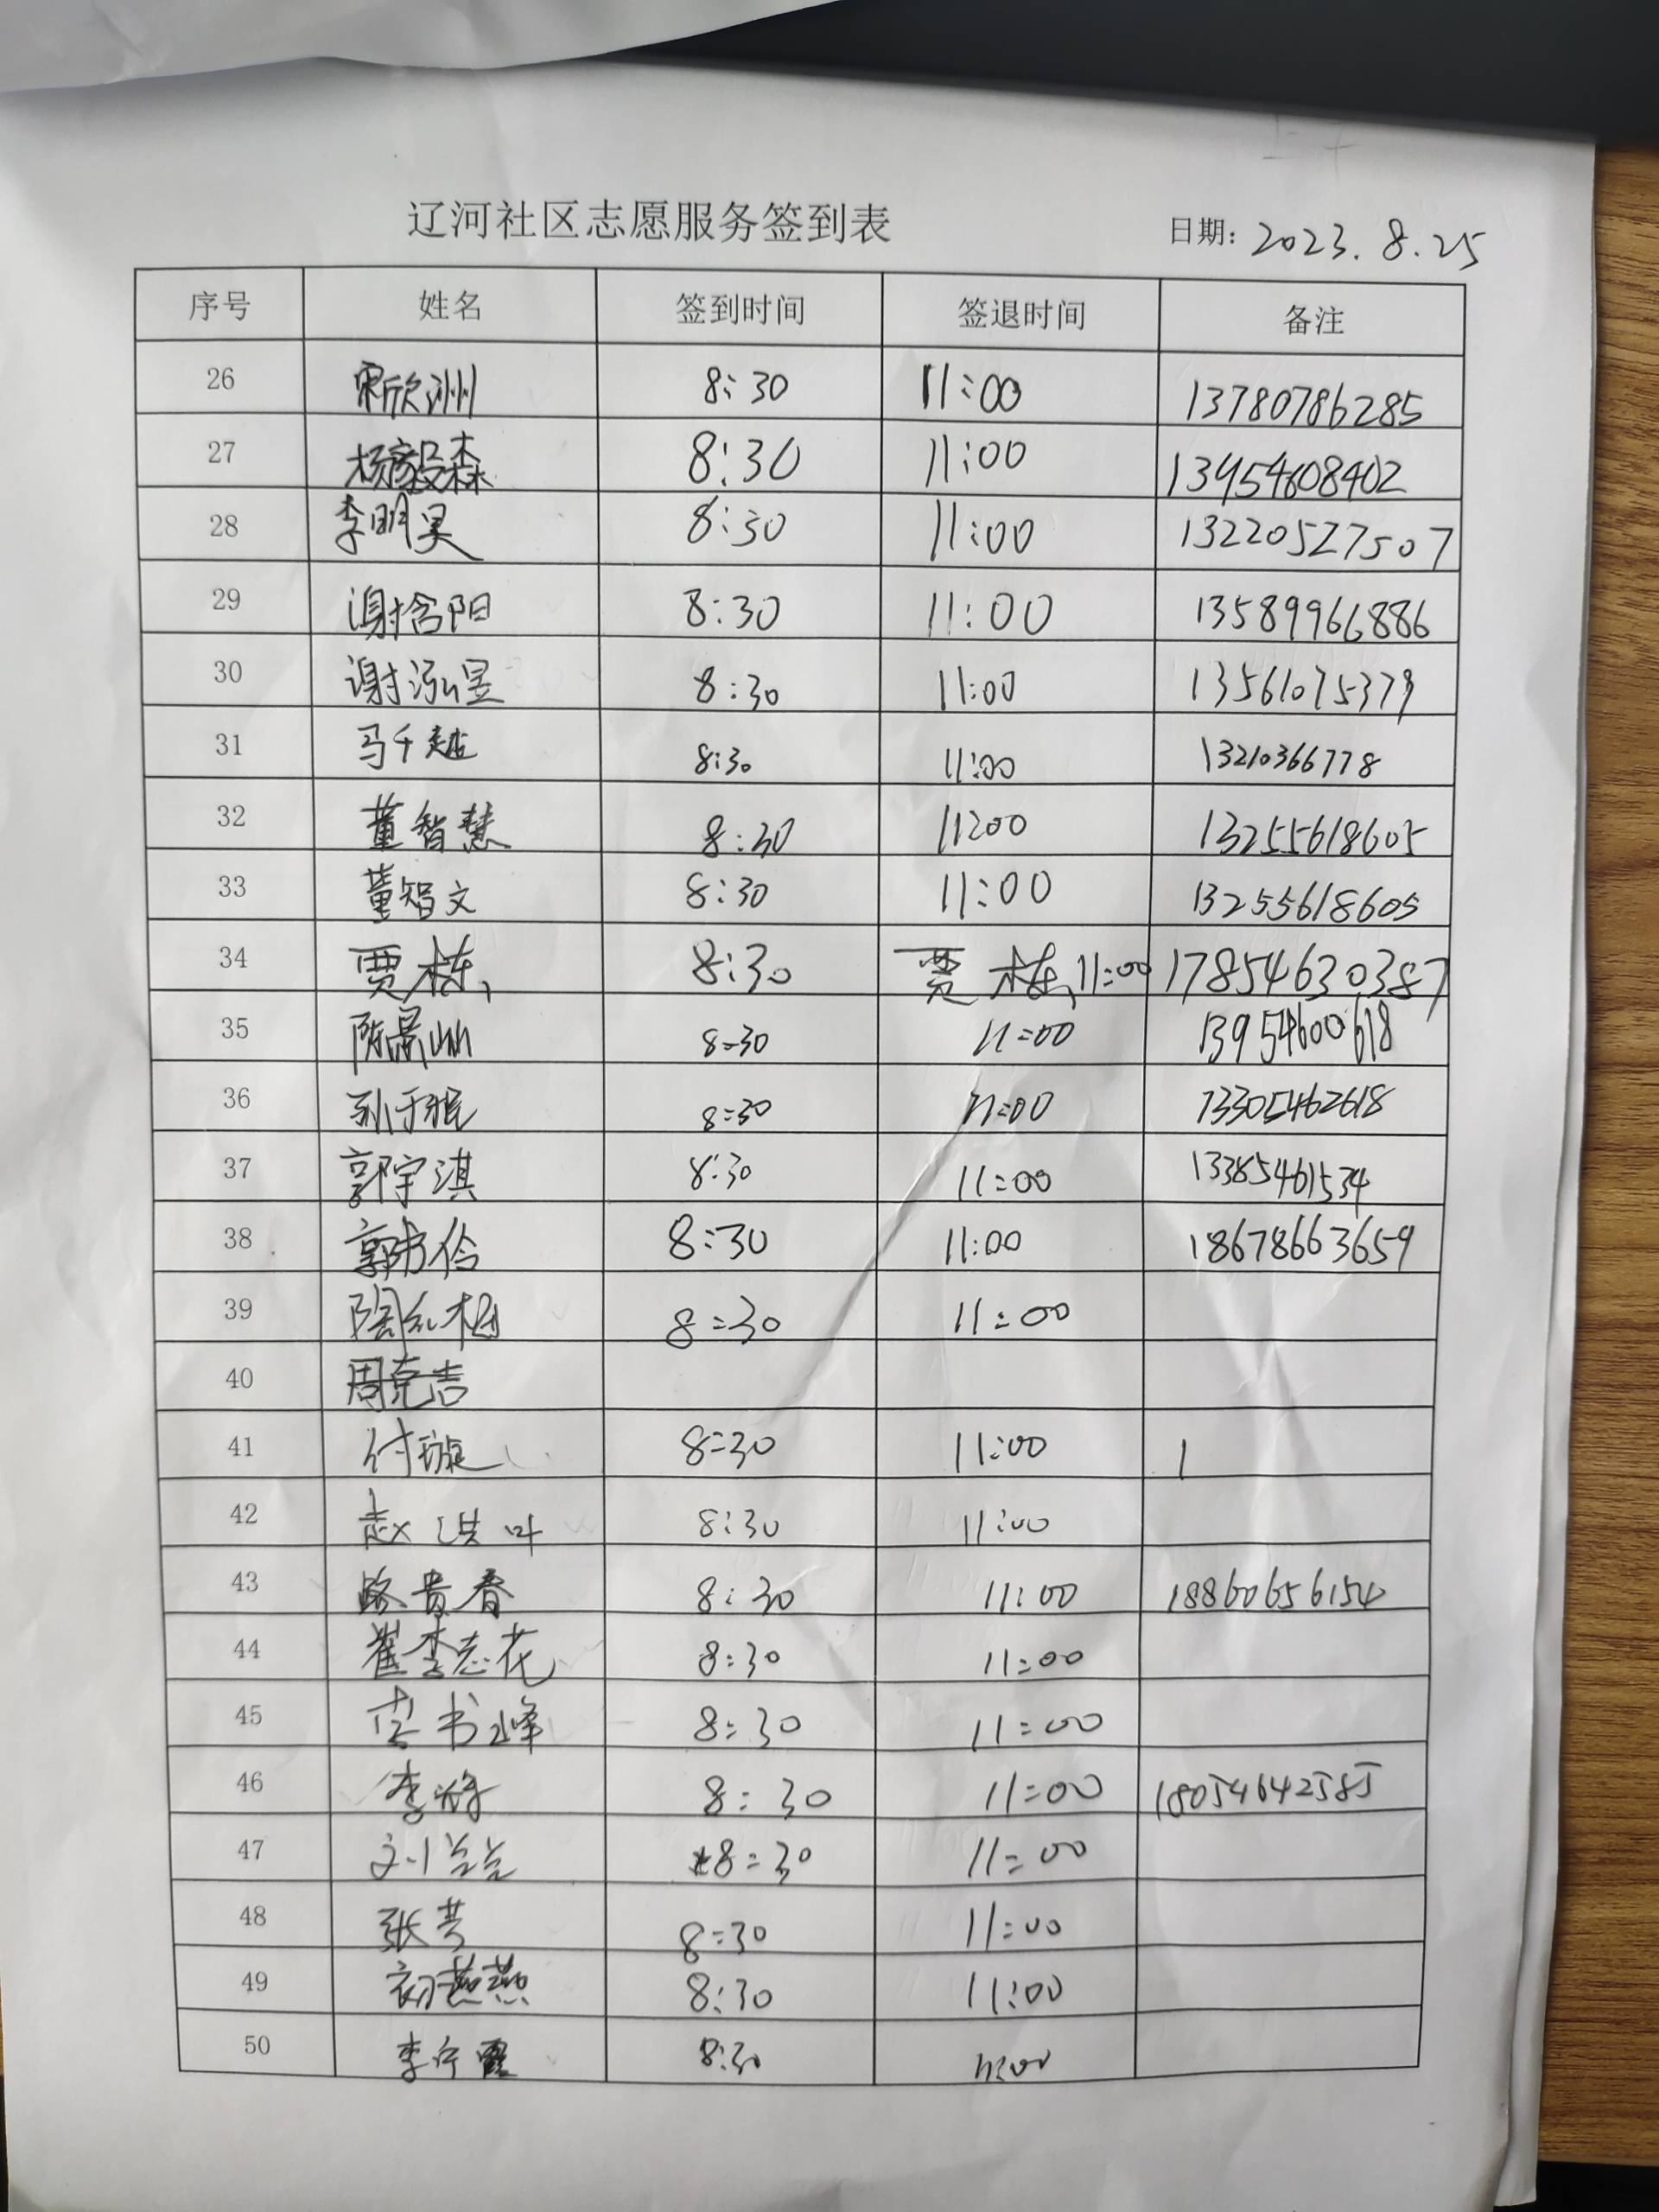 辽河社区志愿服务签到表 日期: 2023.8.25
序号 姓名 签到时间 签退时间 备注
26 宋欣洲 8:30 11:00 13780786285
27 杨毅森 8:30 11:00 13954608402
28 李明昊 8:30 11:00 13220527507
29 谢含阳 8:30 11:00 13589966886
30 谢泓昱 8:30 11:00 13561075379
31 马千越 8:30 11:00 13210366778
32 董智慧 8:30 11:00 13255618605
33 董智文 8:30 11:00 13255618605
34 贾栋 8:30 贾栋 11:00 17854630387
35 陈景灿 8:30 11:00 13954600618
36 孙于珉 8:30 11:00 13305462618
37 郭宇淇 8:30 11:00 13385461534
38 郭书伶 8:30 11:00 18678663659
39 陶红梅 8:30 11:00
40 周克吉
41 付璇 8:30 11:00 1
42 赵洪叶 8:30 11:00
43 路贵春 8:30 11:00 18860656154
44 崔李志花 8:30 11:00
45 李书峰 8:30 11:00
46 李 8:30 11:00 18054642585
47 刘兰兰 8:30 11:00
48 张芳 8:30 11:00
49 初燕燕 8:30 11:00
50 李宁霞 8:30 11:00